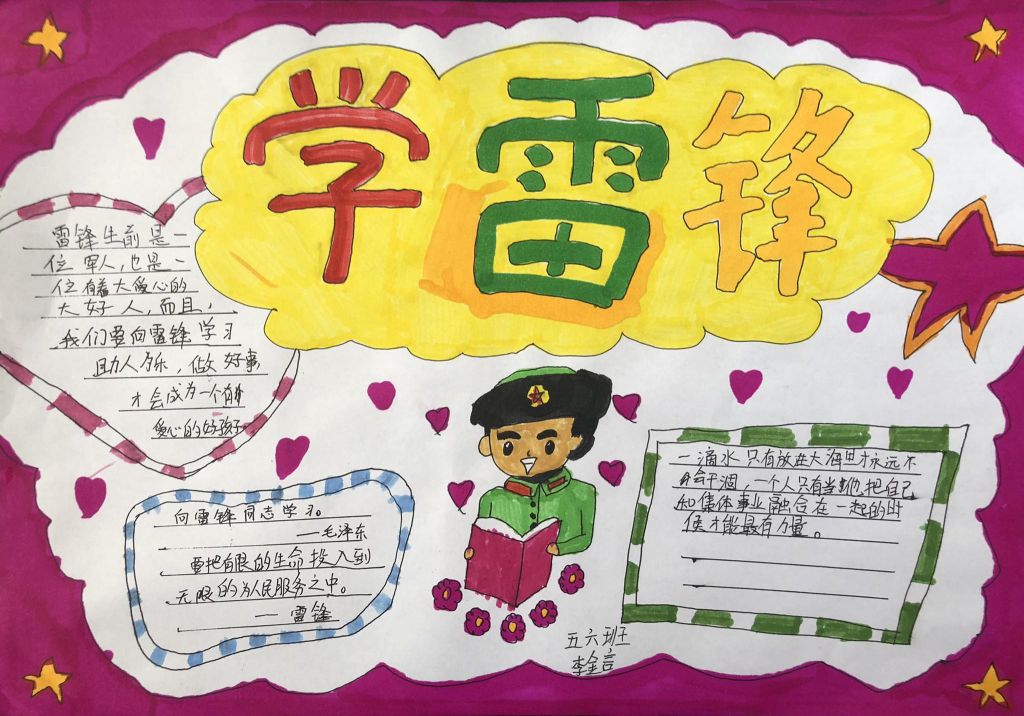 学雷锋
雷锋生前是一
位军人,也是一
位有着大爱心的
大好人,而且,
我们要向雷锋学习
助人为乐,做好事
才会成为一个有
爱心的好孩子.
向雷锋同志学习。
——毛泽东
要把有限的生命投入到
无限的为人民服务之中。
—雷锋
一滴水只有放进大海里才永远不
会干涸,一个人只有当他把自己
和集体事业融合在一起的时
候才能最有力量。
五六班
李金言